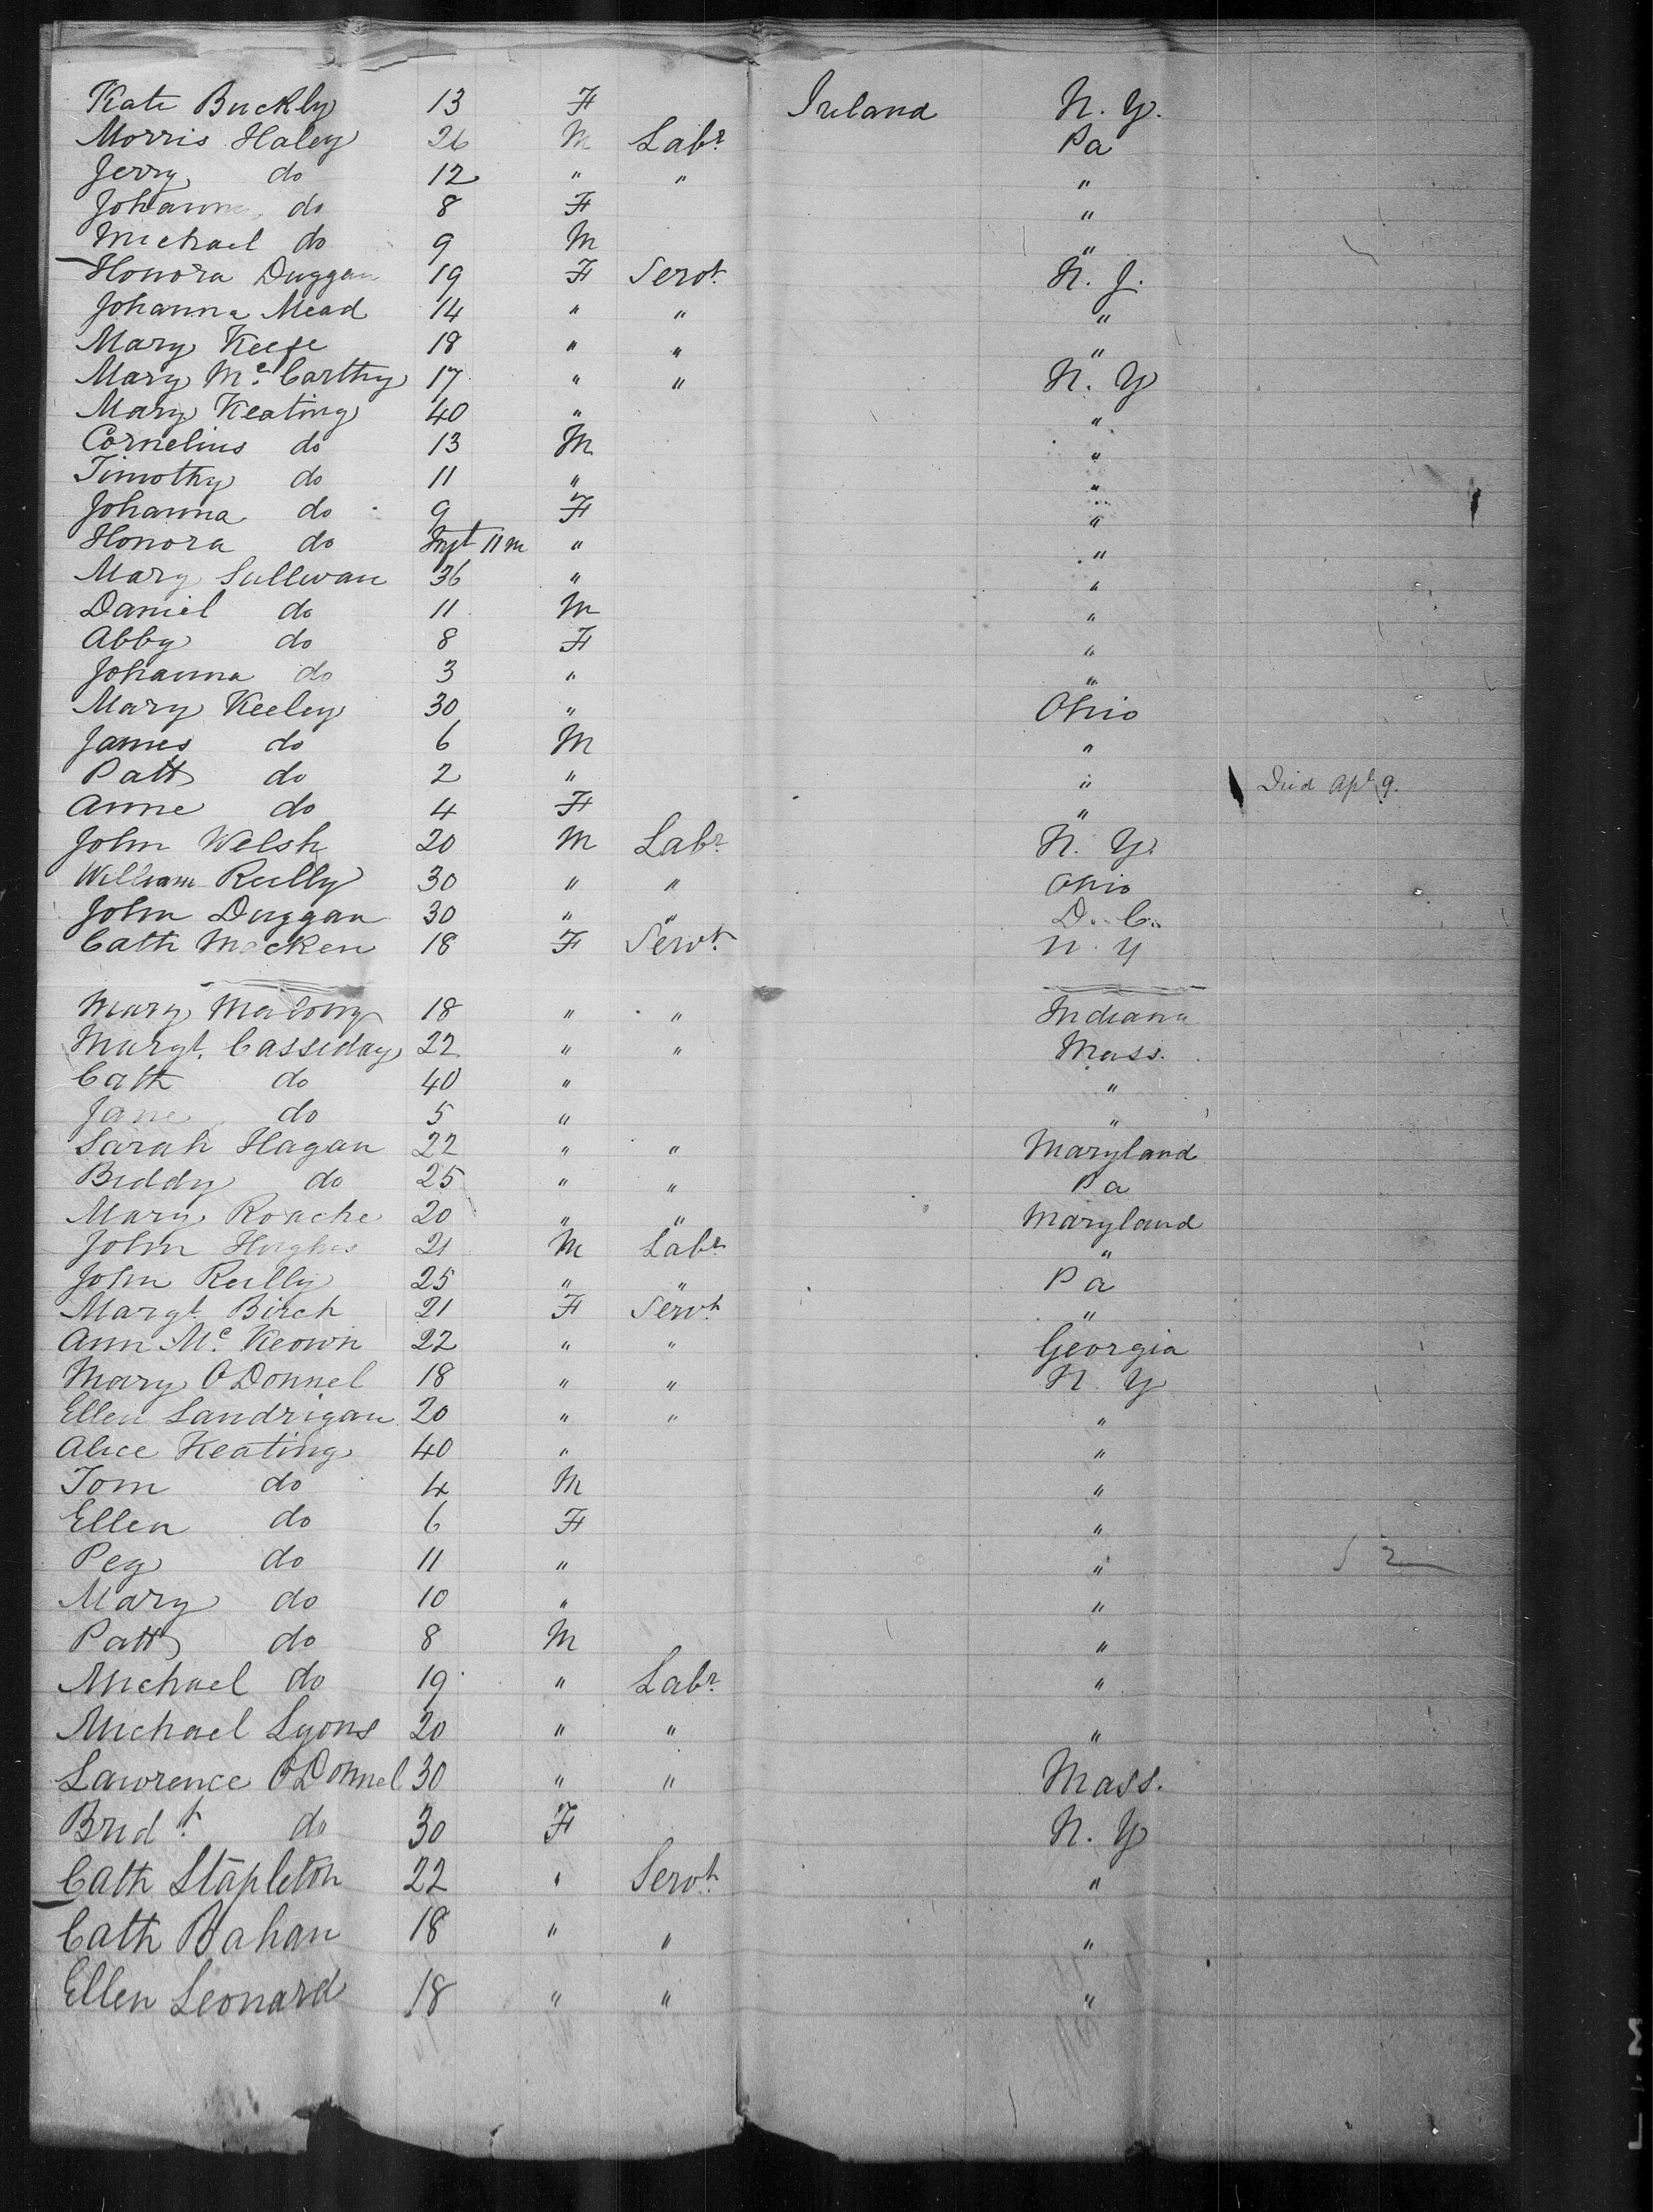 Kate Buckly 13 F Ireland N. Y.
Morris Haley 26 M Labr Pa
Jerry do 12 " " "
Johanna do 8 F "
Michael do 9 M "
Honora Duggan 19 F Servt N. J.
Johanna Mead 14 " " "
Mary Keefe 18 " " "
Mary Mc Carthy 17 " " N. Y
Mary Keating 40 " "
Cornelius do 13 M "
Timothy do 11 " "
Johanna do 9 F "
Honora do Inft 11 m " "
Mary Sullivan 36 " "
Daniel do 11 M "
Abby do 8 F "
Johanna do 3 " "
Mary Keeley 30 " Ohio
James do 6 M "
Patt do 2 " " Died Apl 9.
Anne do 4 F "
John Welsh 20 M Labr N. Y.
William Reilly 30 " " Ohio
John Duggan 30 " " D. C.
Cath Macken 18 F Servt N. Y
Mary Malony 18 " " Indiana
Margt. Cassiday 22 " " Mass.
Cath do 40 " "
Jane do 5 " "
Sarah Hagan 22 " " Maryland
Biddy do 25 " " Pa
Mary Roache 20 " " Maryland
John Hughes 21 M Labr "
John Reilly 25 " " Pa
Margt. Birch 21 F Servt "
Ann Mc Keown 22 " " Georgia
Mary O'Donnel 18 " " N. Y
Ellen Landrigan 20 " " "
Alice Keating 40 " "
Tom do 4 M "
Ellen do 6 F "
Peg do 11 " "
Mary do 10 " "
Patt do 8 M "
Michael do 19 " Labr "
Michael Lyons 20 " " "
Lawrence O'Donnel 30 " " Mass.
Bridt do 30 F N. Y
Cath Stapleton 22 " Servt "
Cath Bahan 18 " " "
Ellen Leonard 18 " " "